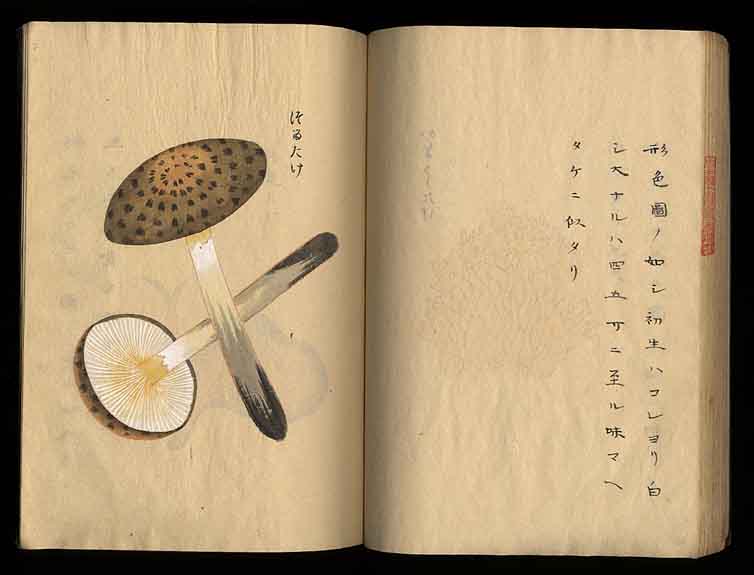 形色圖ノ如シ初生ハコレヨリ白
シ大ナルハ四五寸ニ至ル味マヘ
タケニ似タリ
たけ